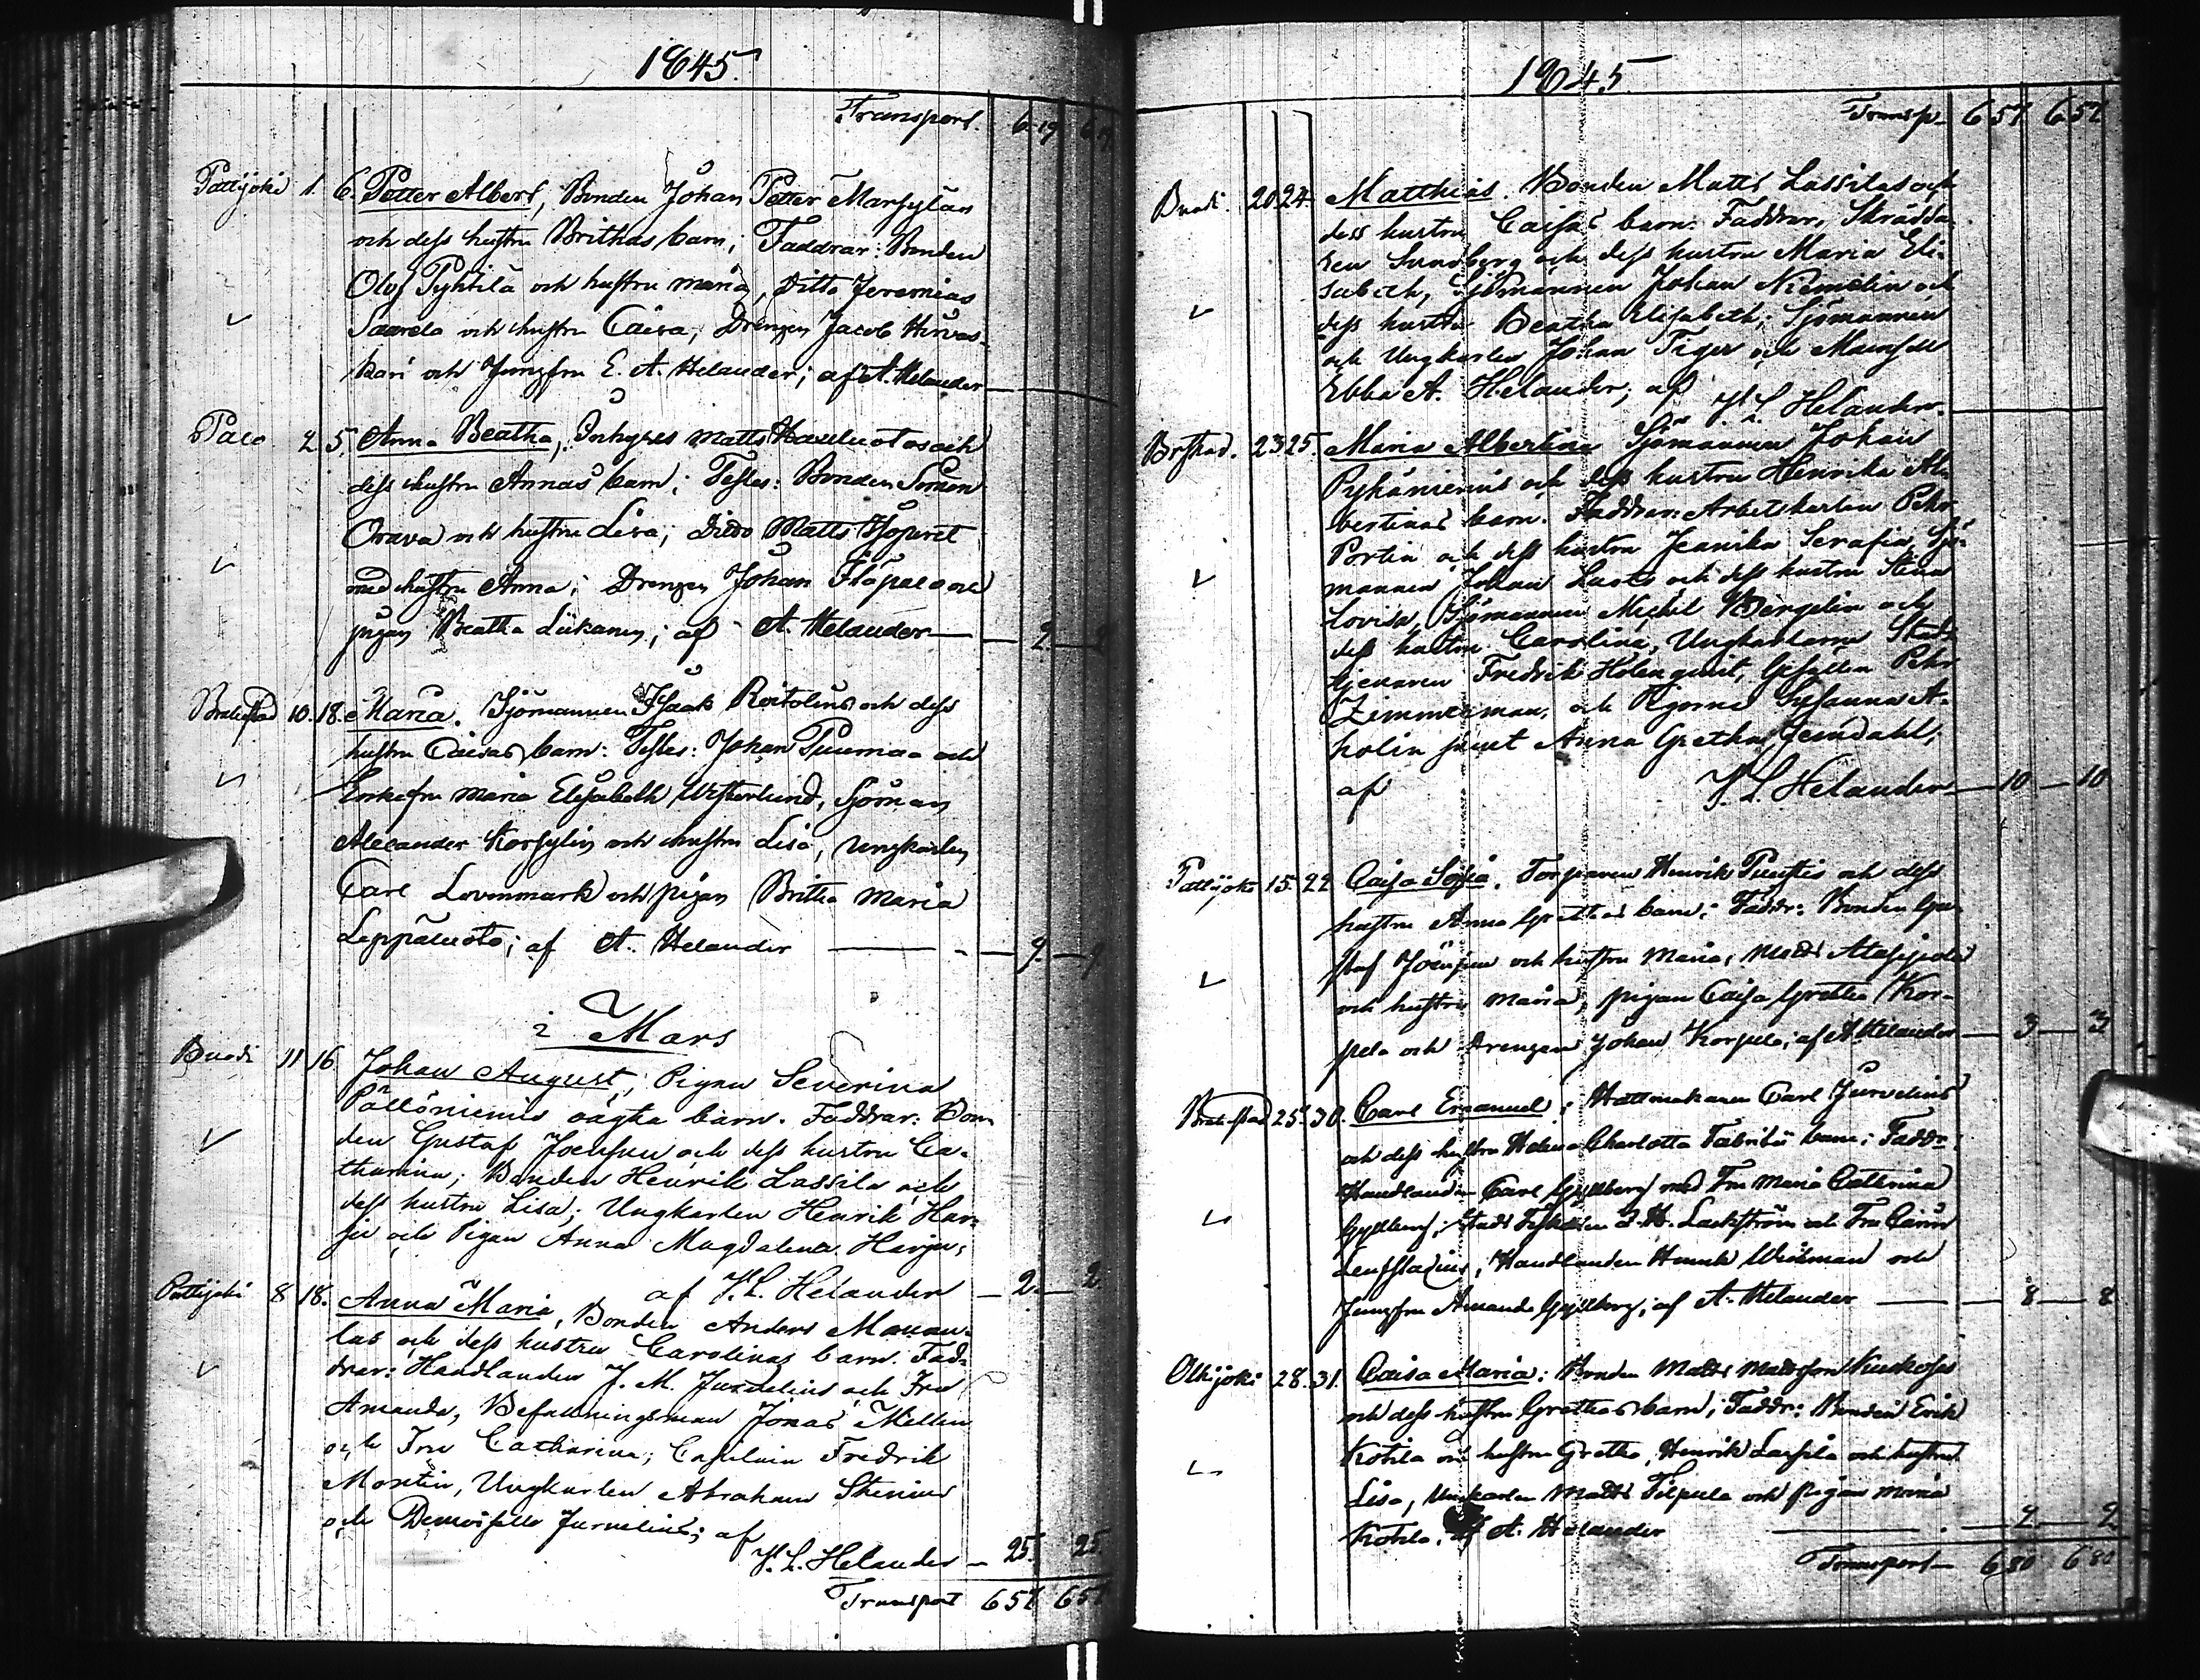 1845.
Transport. 6 19 6 19
Pattijoki 1. 6. Petter Albert, Bonden Johan Petter Marsylän
och dess hustru Brithas barn; Faddrar: Bonden
Olof Pyhtilä och hustru Maria, Ditto Jeremias
Saarela och hustru Caisa, Drengen Jacob Hirvas-
kari och Jungfru E. A. Helander; af A. Helander
Palo 2. 5. Anna Beatha, Inhyses Matts Hauluotos och
dess hustru Annas barn; Testes: Bonden Simon
Orava och hustru Lisa; Ditto Matts
med hustru Anna; Drengen Johan och
pigan Beatha Liikanen; af A. Helander 2. 2
Brahestad 10. 18. Maria. Sjömannen Isaak Reitolins och dess
hustru Caisas barn: Testes: Johan Puumaa och
Enkefru Maria Elisabeth Westerlund, Sjöman
Alexander Korsylin och hustru Lisa, Ungkarlen
Carl Lovenmark och pigan Britha Maria
Leppäluoto; af A. Helander 9. 9
i Mars
Buodi 11 16 Johan August; Pigan Severina
Pällönienis oägta barn. Faddrar: Bon-
den Gustaf Joensuu och dess hustru Ca-
tharina; Bonden Henrik Lassila och
dess hustru Lisa; Ungkarlen Henrik Har-
ju och Pigan Anna Magdalena Harju;
af J. L. Helander 2. 2.
Pattijoki 8 18. Anna Maria, Bonden Anders
las och dess hustru Carolinas barn. Fad-
drar: Handlanden J. M. Jurvelius och Fru
Amanda, Befallningsman Jonas Mellin
och Fru Catharina; Capitain Fredrik
Montin, Ungkarlen Abraham Stenius
och Demoiselle Jurvelius; af
J. L. Helander 25. 25.
Transport 657 657
1845
Transp. 657 657
Buodi. 20. 24. Matthias. Bonden Matts Lassilas och
dess hustru Caisas barn: Faddrar, Skrädda-
ren Sundberg och dess hustru Maria Eli-
sabeth, Sjömannen Johan Niemelin och
dess hustru Beatha Elisabeth; Sjömannen
och Ungkarlen Johan Tiger och Mamsell
Ebba A. Helander; af J. L. Helander.
Brstad. 23 25. Maria Albertina Sjömannen Johan
Pyhänienis och dess hustru Henrika Al-
bertinas barn. Faddrar: Arbetskarlen Pehr
Portin och dess hustru Jeanika Serafia, Sjö-
mannen Johan Luoto och dess hustru Stina
Lovisa, Sjömannen Michel Wengelin och
dess hustru Carolina, Ungkarlarne Stads-
tjenaren Fredrik Holmquist, Gesällen Pehr
Zemmerman, och Pigorna Susanna A-
holin samt Anna Gretha Jemdahl;
af J. L. Helander 10 10
Pattijoki 15. 22 Caisa Sofia. Torparen Henrik Puustis och dess
hustru Anna Grethas barn; Faddr: Bonden Gu-
staf Joensuu och hustru Maria, Matts
och hustru Maria, pigan Caisa Gretha Kor-
pela och Drengen Johan Korpela; af A. Helander 3 3
Brahestad 25. 30. Carl Emanuel; Hattmakaren Carl Jurvelins
och dess hustru Helena Charlotta Fabritii barn; Faddr.
Handlanden Carl Gyllberg med Fru Maria Catrina
Gyllberg; Stads Fiskalen J. H. Lackström och Fru
Handlanden Henrik Wichman och
Jungfru Amanda Gyllberg; af A. Helander 8 8
Olkijoki 28. 31. Caisa Maria: Bonden Matts Mattsson
och dess hustru Grethas barn; Faddr: Bonden Erik
Kotila och hustru Gretha, Henrik Lassila och hustru
Lisa, Ungkarlen Matts Tilpula och pigan Maria
Kotila. af A. Helander 2 2.
Transport 680 680